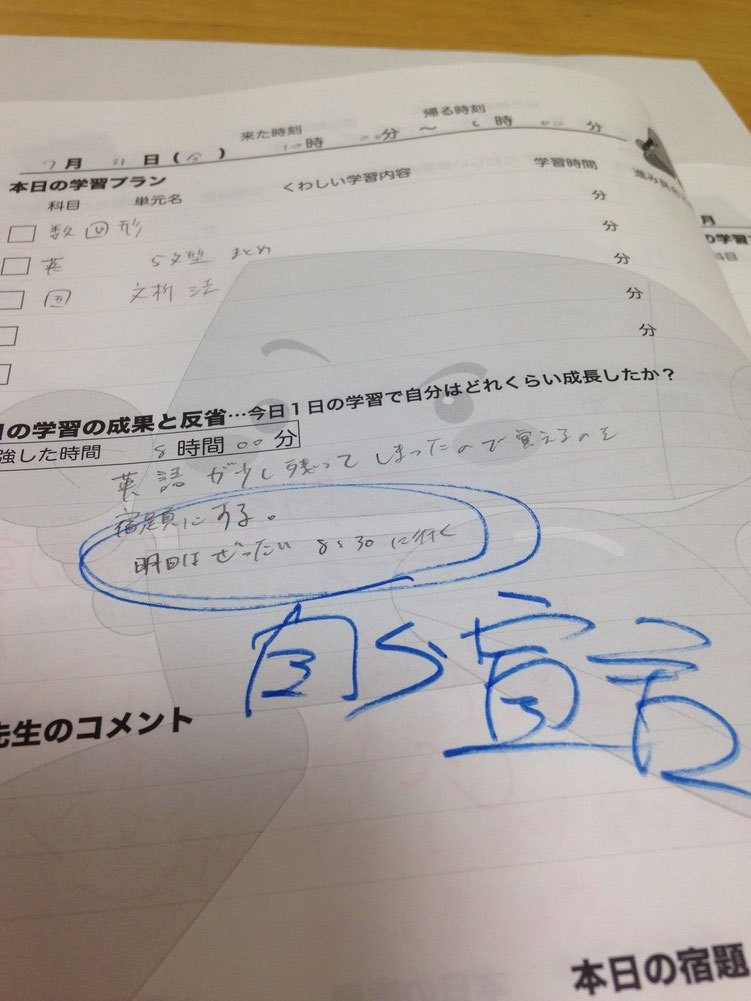 来た時刻 帰る時刻
7月31日(金) 10時00分 〜 6時00分
本日の学習プラン
科目 単元名 くわしい学習内容 学習時間
数 図形 分
英 5文型 まとめ 分
国 文析法 分
分
分
の学習の成果と反省…今日1日の学習で自分はどれくらい成長したか?
強した時間 8時間00分
英語が少し残ってしまったので覚えるのを
宿題にする。
明日はぜったい 8:30に行く
自ら宣言
先生のコメント
本日の宿題
月
の学習
科目